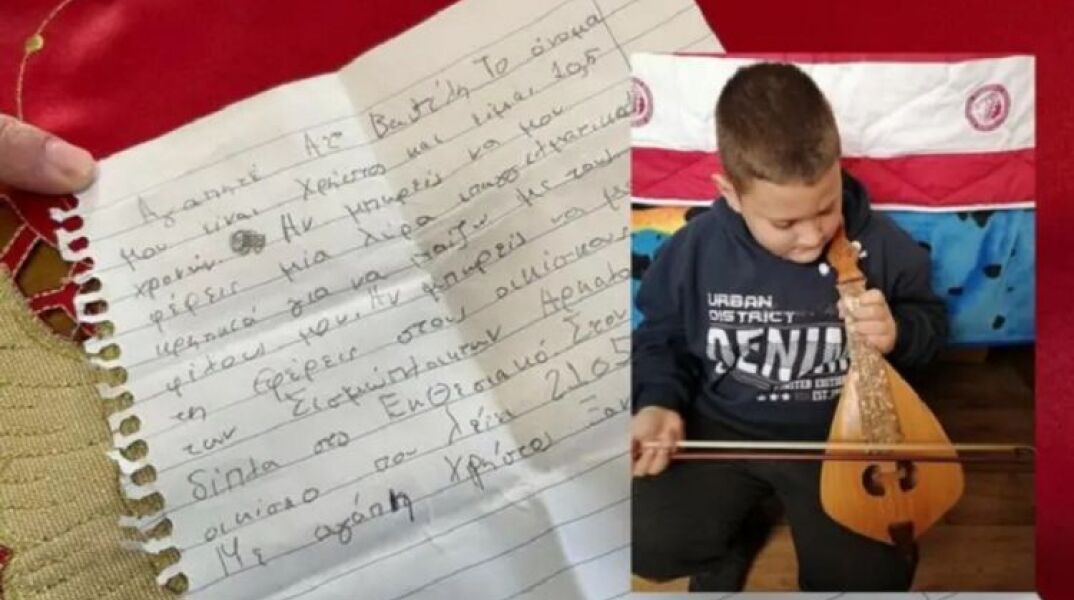 Αγαπητέ Αϊ Βασίλη Το όνομα
μου είναι Χρήστος και είμαι 10,5
χρονών. Αν μπορείς να μου
φέρεις μία λύρα επαγγελματικιά
κρητικιά για να παίζω με τους
φίλους μου. Αν μπορείς να μου
τη φέρεις στους οικίσκους
των Σισμόπληκτων Αρκαλο
δίπλα στο Εκθεσιακό. Στον
οικίσκο που λέει 2105
Με αγάπη Χρήστος
URBAN
DISTRICT
DENIM
LIMITED EDITION